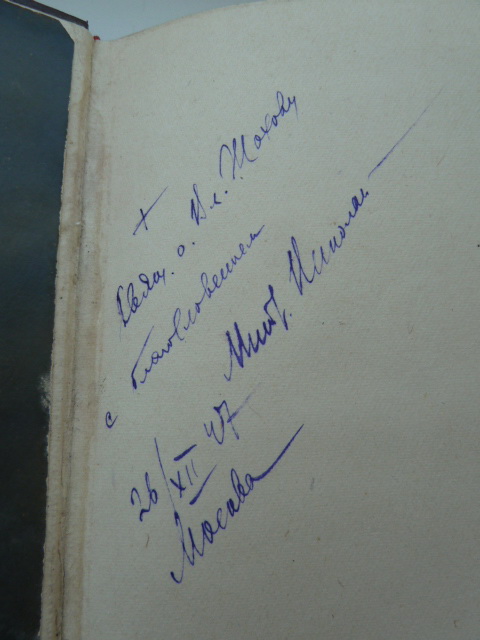 +
Свящ. о. Вл. Жохову
с благословением
Митр. Николай
26/XII 47
Москва